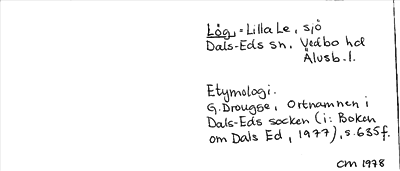 Låg, = Lilla Le, sjö
Dals-Eds sn, Vedbo hd
Älvsb. l.
Etymologi.
G. Drougge, Ortnamnen i
Dals-Eds socken (i: Boken
om Dals Ed, 1977), s. 635 f.
CM 1978